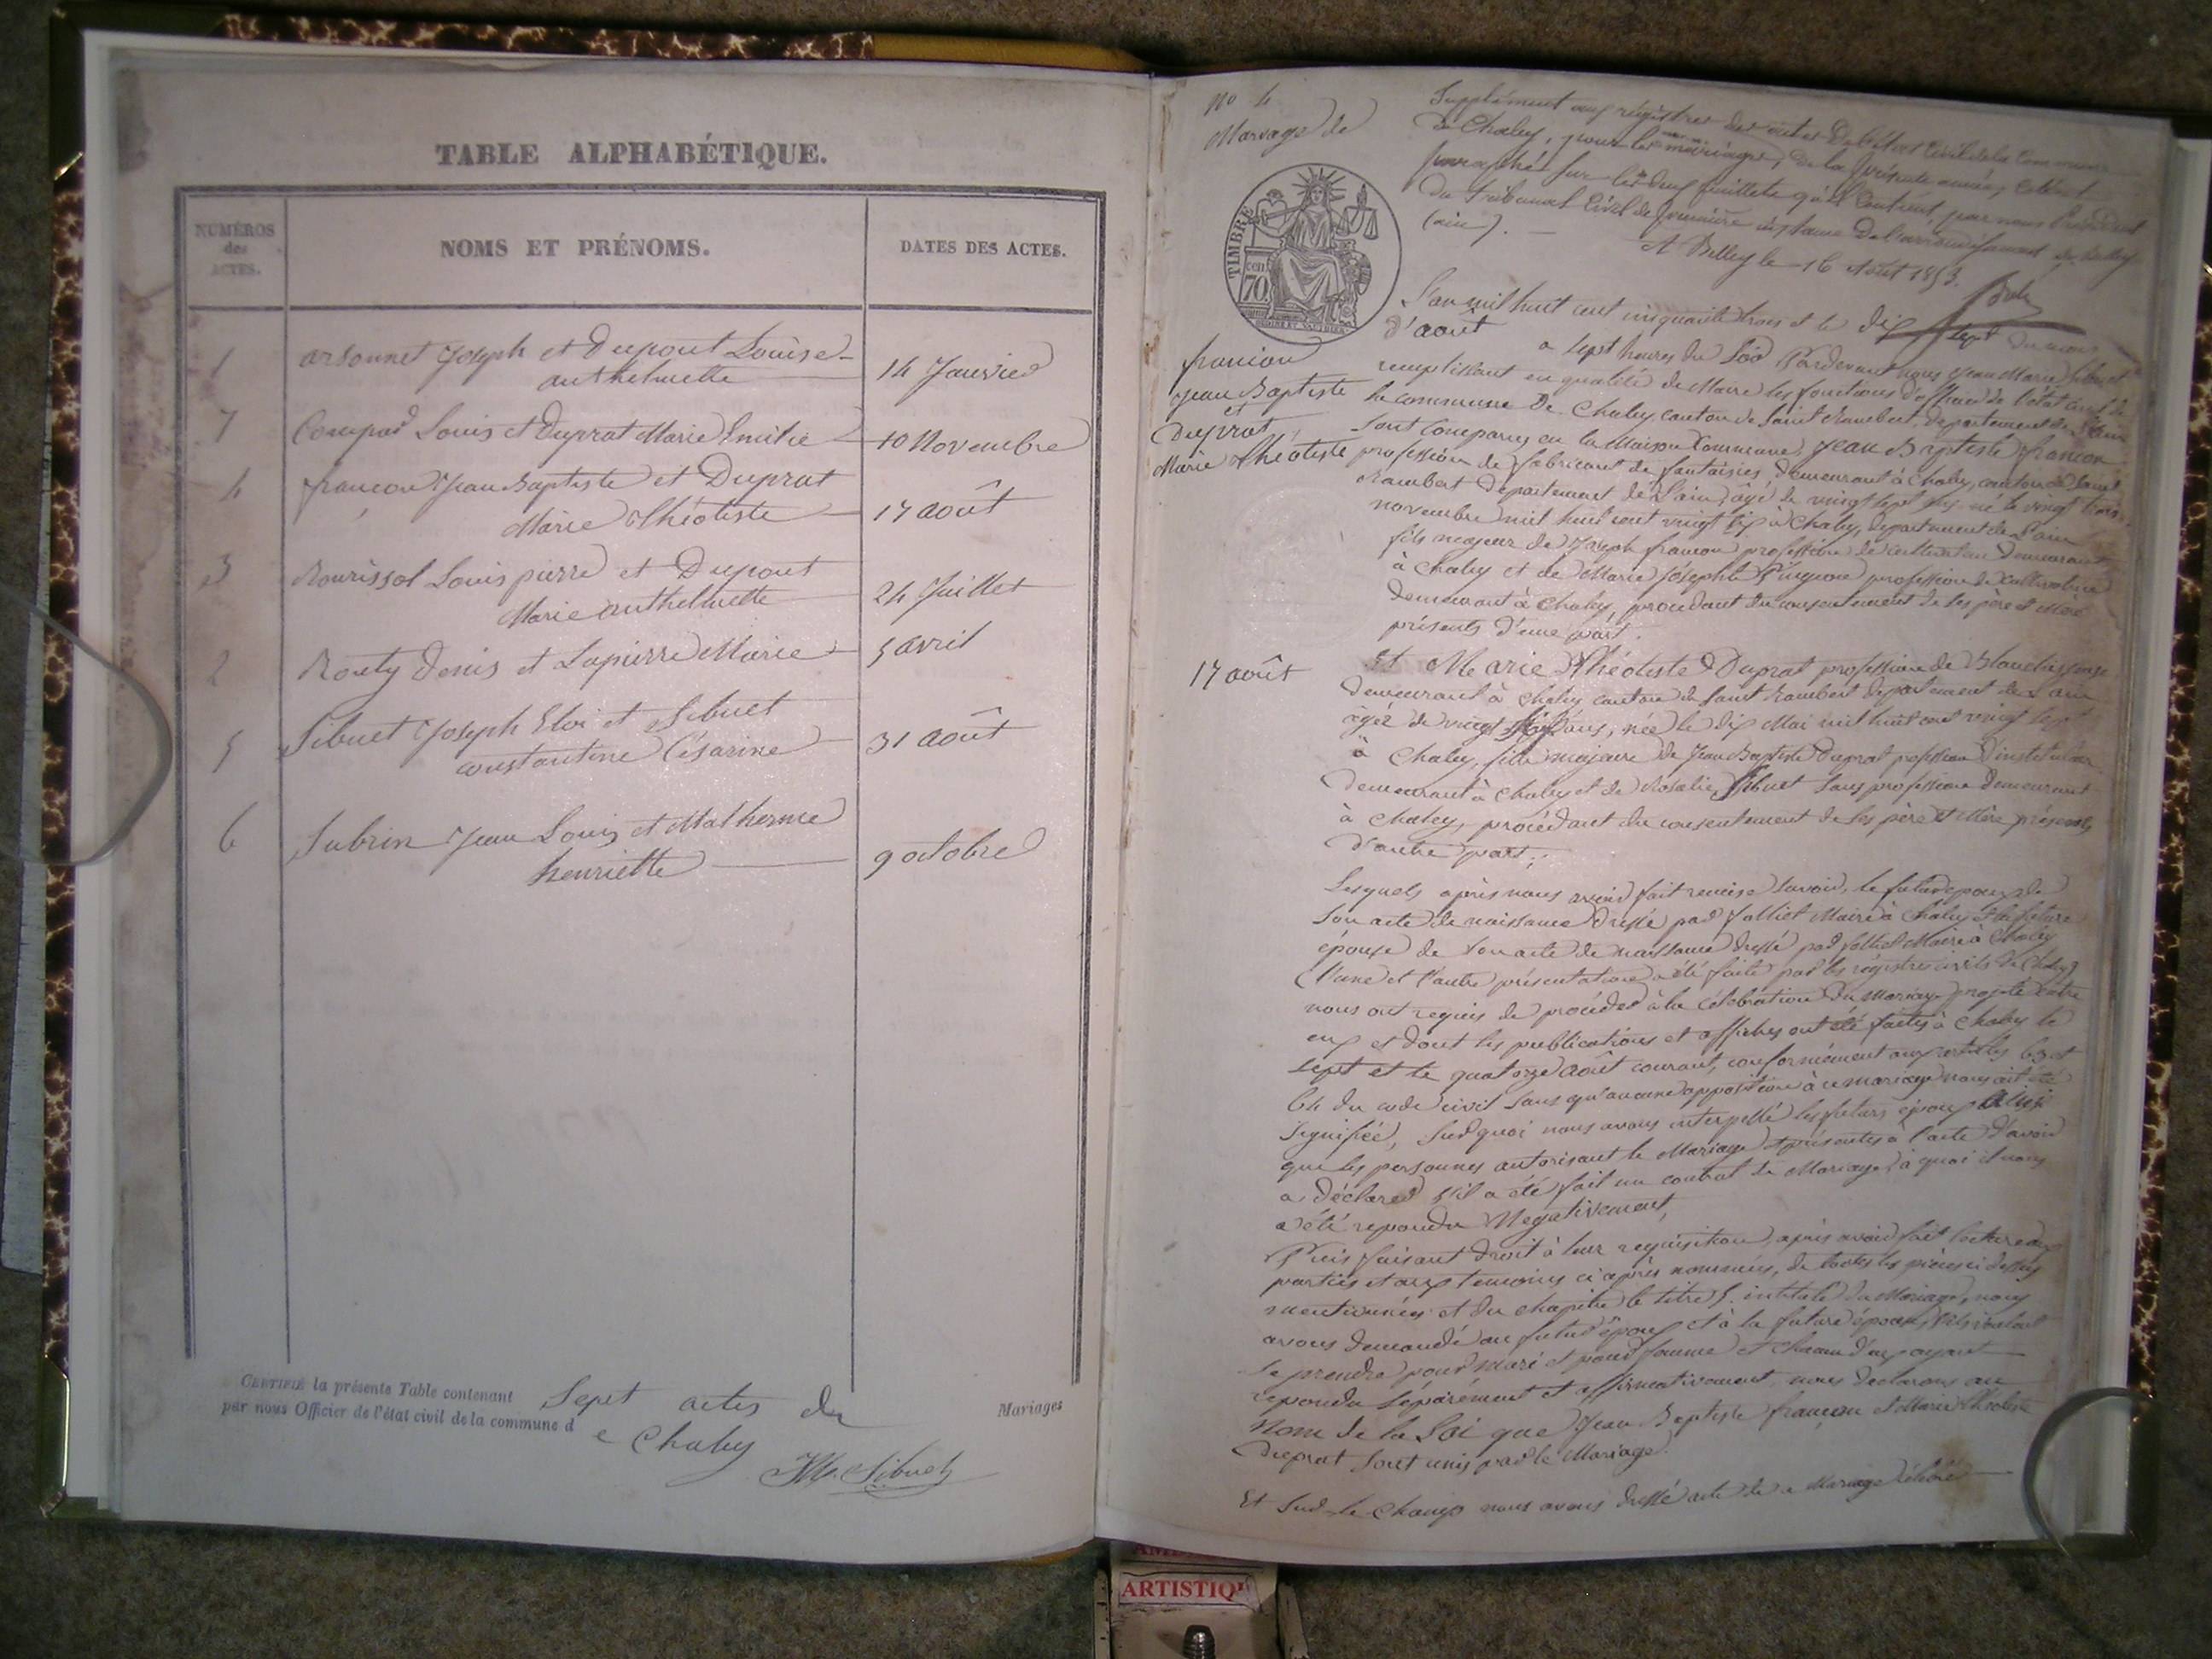 TABLE ALPHABÉTIQUE.
NUMÉROS
des
ACTES.
NOMS ET PRÉNOMS.
DATES DES ACTES.
1 arsonnet Joseph et Dupont Louise
anthelmette 14 Janvier
7 Compas Louis et Duprat Marie Emilie 10 Novembre
4 françon Jean Baptiste et Duprat
Marie Théotiste 17 août
3 Rourissol Louis pierre et Dupont
Marie anthelmette 24 Juillet
2 Routy Denis et Lapierre Marie 5 avril
5 Sibuet Joseph Eloi et Sibuet
constantine Césarine 31 août
6 Subrin Jean Louis et Malherme
henriette 9 octobre
CERTIFIÉ la présente Table contenant Sept actes de Mariages
par nous Officier de l'état civil de la commune d e Chaley
JM. Sibuet
No 4
Mariage de
françon
Jean Baptiste
et
Duprat
Marie Théotiste
17 août
TIMBRE
70
Supplément aux régistres des actes de l'état Civil de la Commune
de Chaley, pour les mariages, de la présente année, coté et
paraphé sur les deux feuillets qu'il contient, par nous Président
du Tribunal Civil de première instance de l'arrondissement de Belley
(ain). —
A Belley le 16 Août 1853.
L'an mil huit cent cinquante trois et le dix sept du mois
d'août à sept heures du soir Pardevant nous Jean Marie Sibuet
remplissant en qualité de Maire les fonctions d'officier de l'état civil de
la commune De Chaley canton de Saint Rambert, département de l'ain
sont Comparus en la Maison Commune, Jean Baptiste françon
profession de fabricant de fantaisies demeurant à Chaley, canton de Saint
Rambert département de l'ain, âgé de vingt sept ans né le vingt trois
novembre mil huit cent vingt six à Chaley, département de l'ain
fils majeur de Joseph françon profession de cultivateur demeurant
à Chaley et de Marie Josephte profession de Cultivatrice
demeurant à Chaley, procédant du consentement de ses père et Mère
présents d'une part.
Et Marie Théotiste Duprat profession de
demeurant à Chaley canton de Saint Rambert département de l'ain
âgée de vingt six ans, née le dix Mai mil huit cent vingt sept
à Chaley, fille majeure de Jean Baptiste Duprat profession d'instituteur
demeurant à Chaley et de Rosalie Sibuet sans profession demeurant
à Chaley, procédant du consentement de ses père et Mère présents
d'autre part;
Lesquels après nous avoir fait remise savoir, le futur époux de
son acte de naissance dressé par Jolliet Maire à Chaley et la future
épouse de son acte de naissance dressé par Jolliet Maire à Chaley
(l'une et l'autre présentation a été faite par les régistres civils de Chaley)
nous ont requis de procéder à la célébration du Mariage projeté entre
eux et dont les publications et affiches ont été faites à Chaley le
sept et le quatorze août courant, conformément aux articles 63 et
64 du code civil sans qu'aucune opposition à ce mariage nous ait été
signifiée, Sur quoi nous avons interpellé les futurs époux ainsi
que les personnes autorisant le Mariage et présentes à l'acte d'avoir
a déclarer s'il a été fait un contrat de Mariage, à quoi il nous
a été repondu Negativement,
Puis faisant droit à leur requisition, après avoir fait lecture aux
parties et aux temoins ci après nommés, de toutes les pièces ci dessus
mentionnées et du chapitre 6 titre 5. intitulé du Mariage, nous
avons demandé au futur époux et à la future épouse s'ils veulent
se prendre pour mari et pour femme et chacun d'eux ayant
repondu séparément et affirmativement, nous declarons au
Nom de la Loi que Jean Baptiste françon et Marie Théotiste
Duprat sont unis par le Mariage.
Et Sur le Champ nous avons dressé acte de ce Mariage célébré
ARTISTIQU